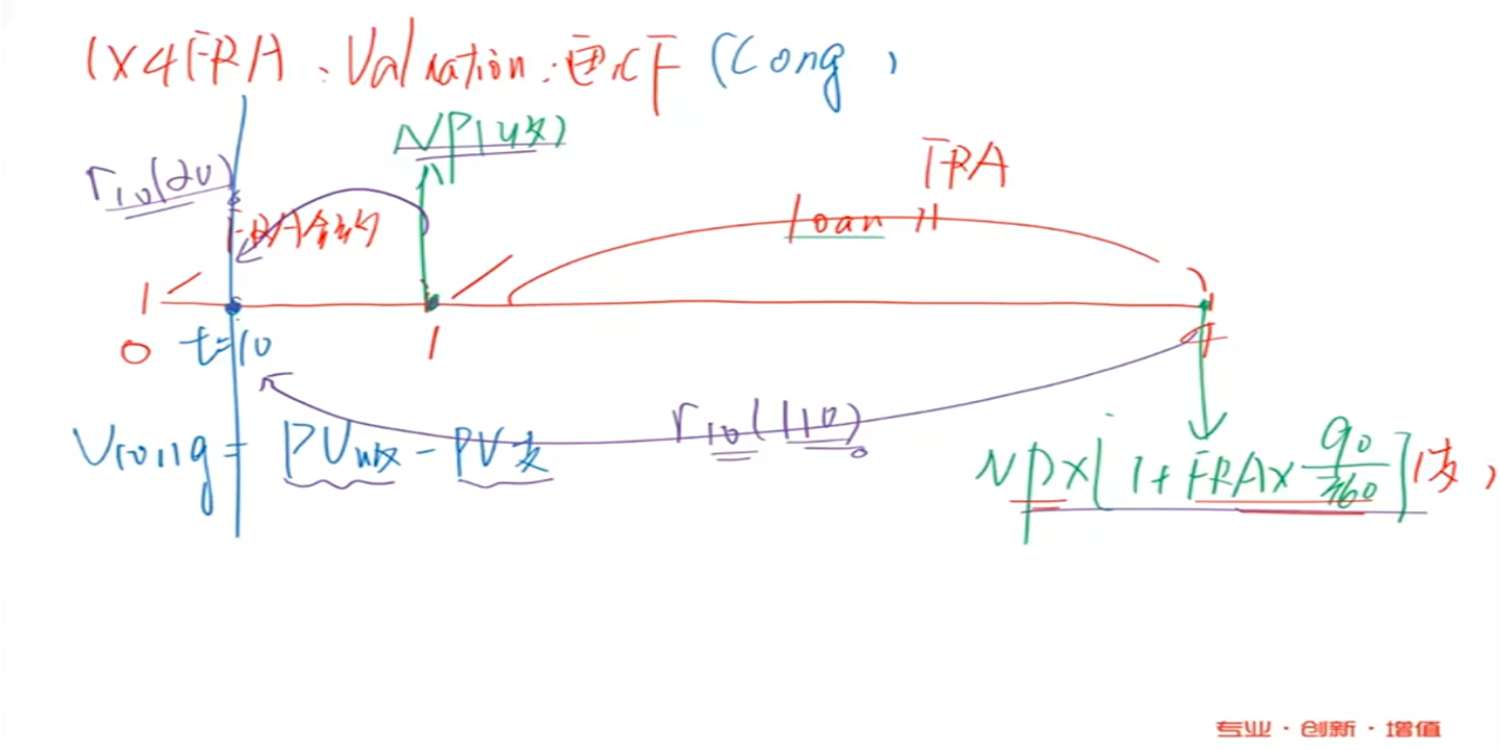 1×4FRA:Valuation:画CF (Long)
NP(收)
FRA
r₁₀(20)
FRA合约
loan
0 t=10 1 4
r₁₀(110)
Vlong = PV收 - PV支
NP×[1+FRA×90/360](支)
专业·创新·增值